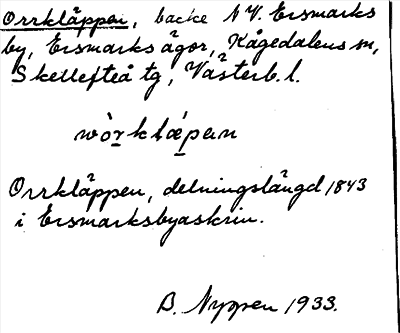 Orrkläppen, backe N V. Ersmarks
by, Ersmarks ägor, Kågedalens sn,
Skellefteå tg, Västerb. l.
wòrklǽpan
Orrkläppen, delningslängd 1843
i Ersmarksbyaskrin.
B. Nyppen 1933.